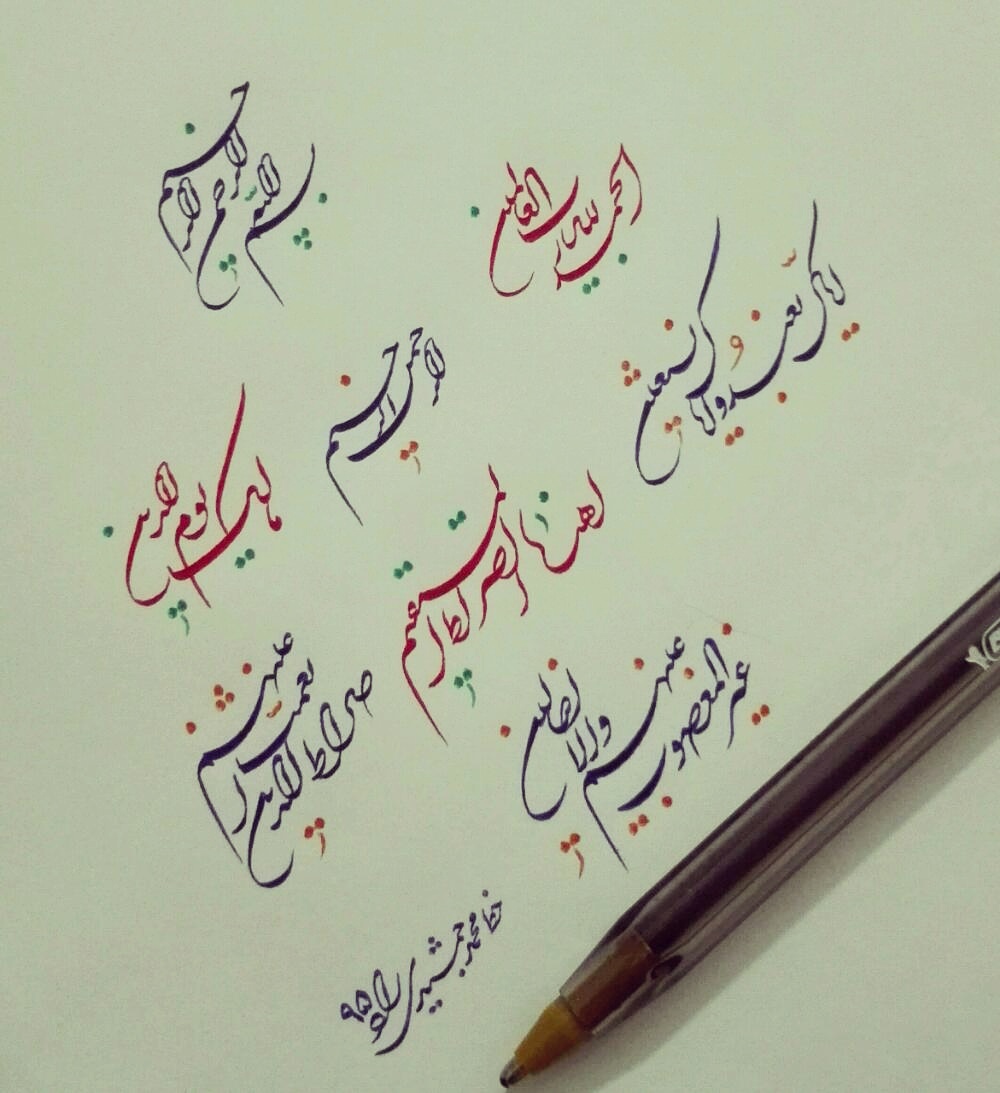 بسم الله الرحمن الرحیم
الحمد لله رب العالمین
الرحمن الرحیم
مالک یوم الدین
ایاک نعبد و ایاک نستعین
اهدنا الصراط المستقیم
صراط الذین انعمت علیهم
غیر المغضوب علیهم ولا الضالین
محمد جمشیدی
۹۵